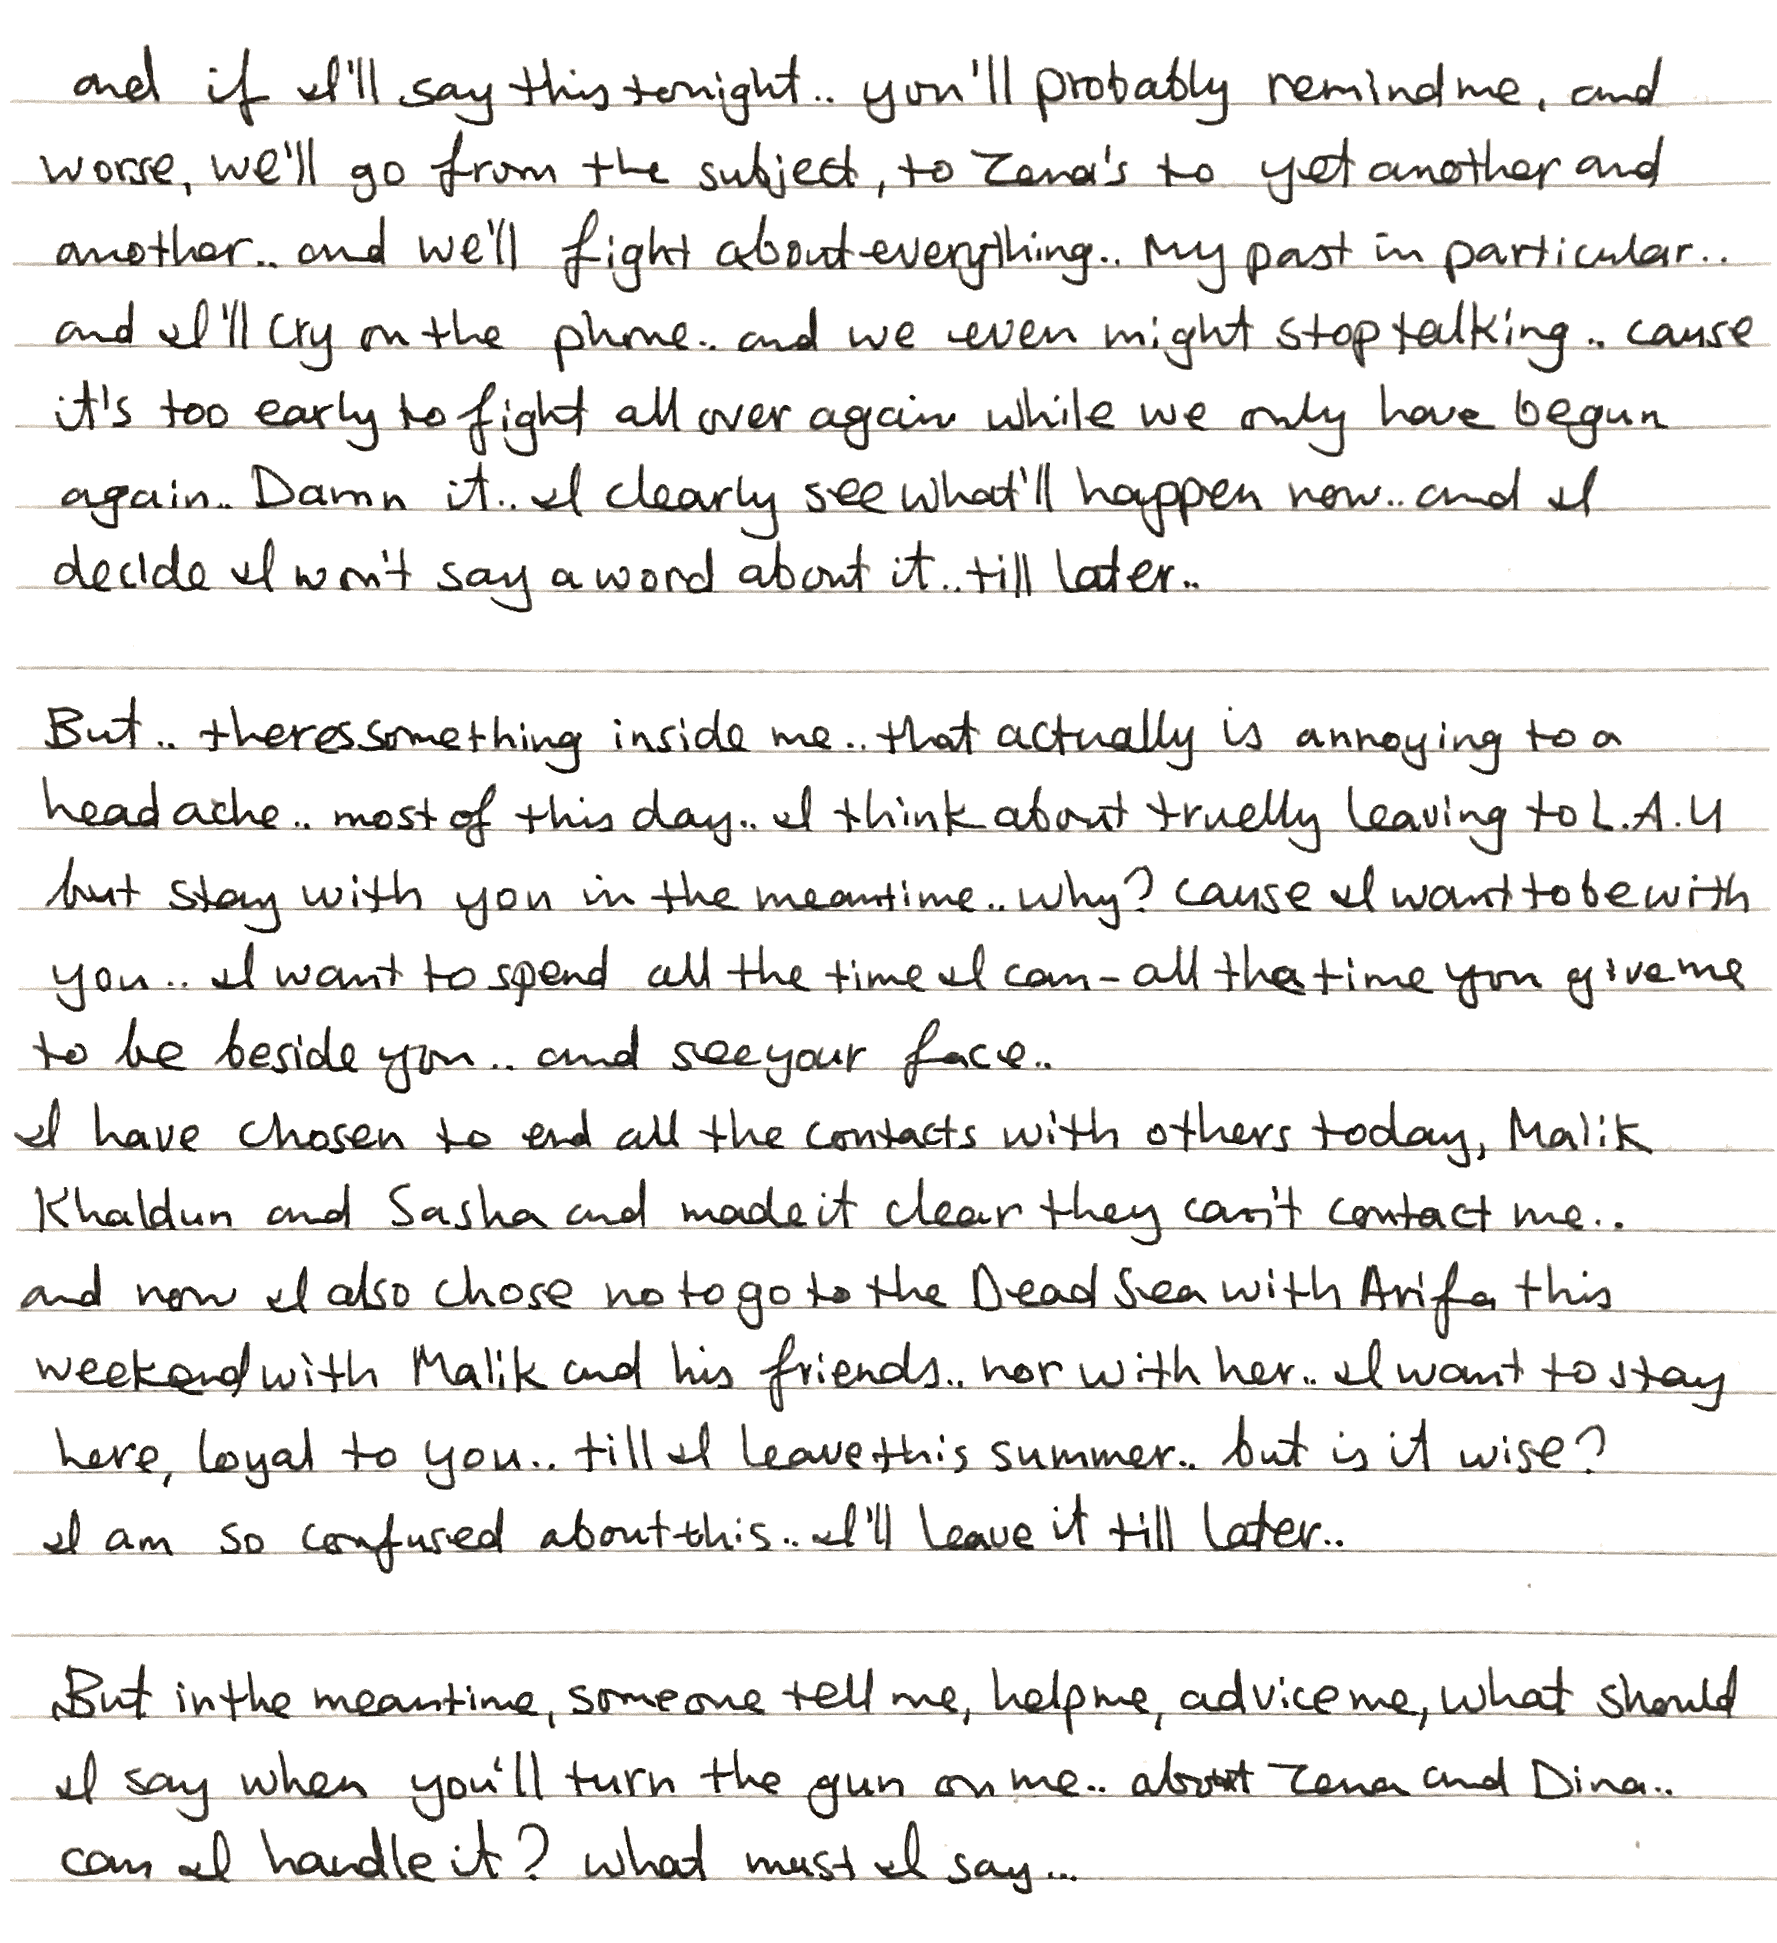 and if I'll say this tonight.. you'll probably remind me, and
worse, we'll go from the subject, to Zena's to yet another and
another.. and we'll fight about everything.. My past in particular..
and I'll cry on the phone.. and we even might stop talking.. cause
it's too early to fight all over again while we only have begun
again.. Damn it.. I clearly see what'll happen now.. and I
decide I won't say a word about it.. till later..
But.. theres something inside me.. that actually is annoying to a
headache.. most of this day.. I think about truelly leaving to L.A.U
but stay with you in the meantime.. why? cause I want to be with
you.. I want to spend all the time I can - all the time you give me
to be beside you.. and see your face..
I have chosen to end all the contacts with others today, Malik
Khaldun and Sasha and made it clear they can't contact me..
and now I also chose no to go to the Dead Sea with Arifa this
weekend with Malik and his friends.. nor with her.. I want to stay
here, loyal to you.. till I leave this summer.. but is it wise?
I am so confused about this.. I'll leave it till later..
But in the meantime, someone tell me, help me, advice me, what should
I say when you'll turn the gun on me.. about Zena and Dina..
can I handle it? what must I say...